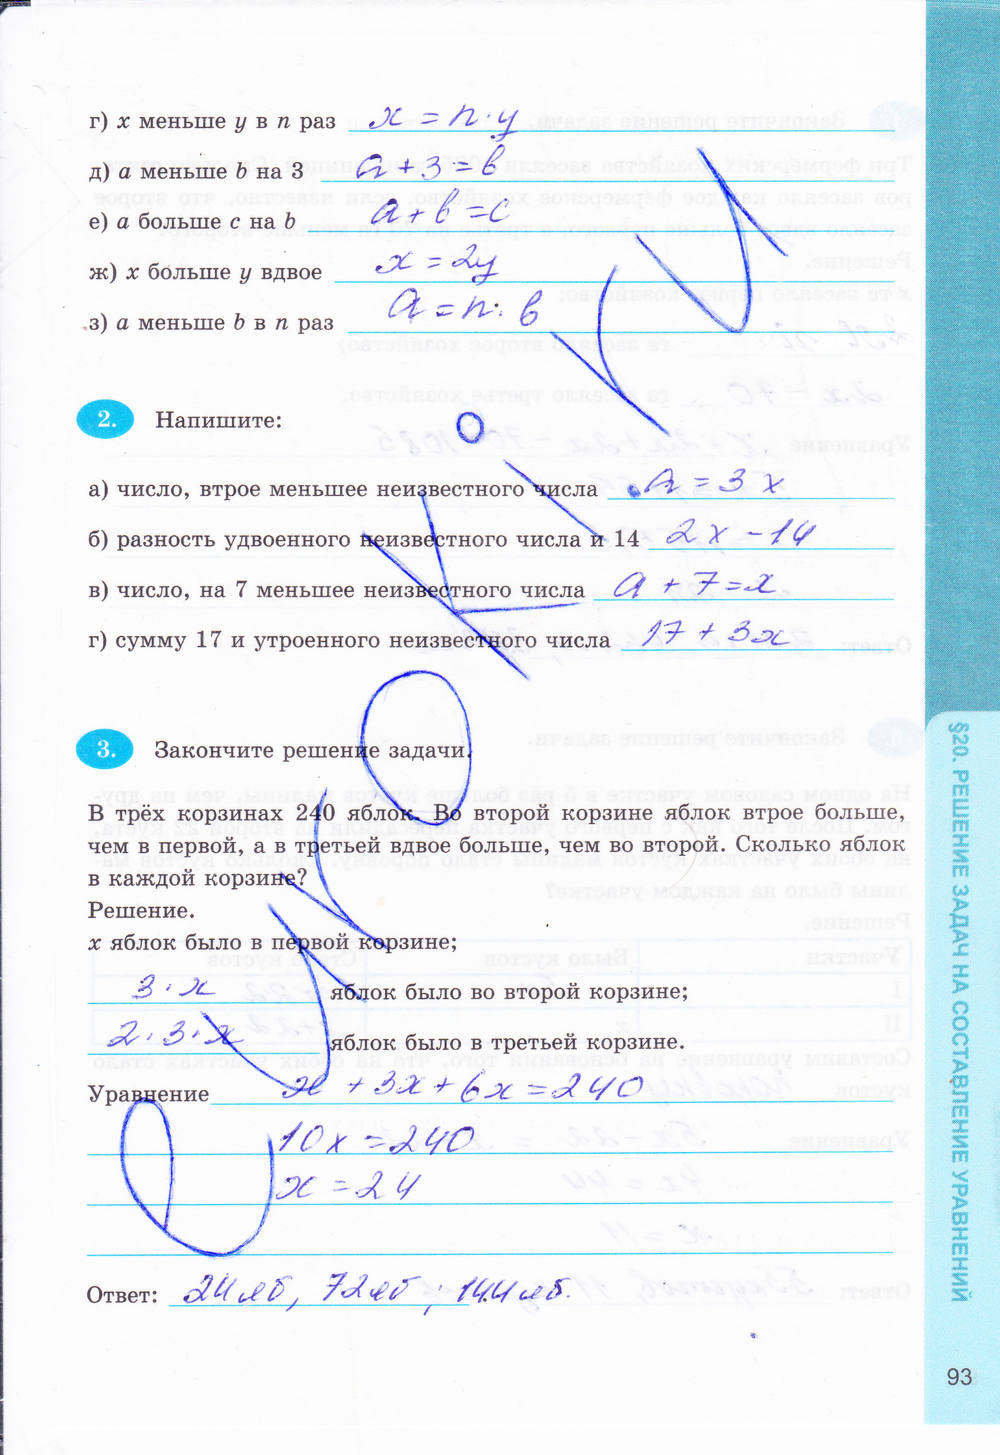 г) x меньше y в n раз x = n · y
д) a меньше b на 3 a + 3 = b
е) a больше c на b a + b = c
ж) x больше y вдвое x = 2y
з) a меньше b в n раз a = n : b
2. Напишите:
а) число, втрое меньшее неизвестного числа a = 3x
б) разность удвоенного неизвестного числа и 14 2x - 14
в) число, на 7 меньшее неизвестного числа a + 7 = x
г) сумму 17 и утроенного неизвестного числа 17 + 3x
3. Закончите решение задачи.
В трёх корзинах 240 яблок. Во второй корзине яблок втрое больше,
чем в первой, а в третьей вдвое больше, чем во второй. Сколько яблок
в каждой корзине?
Решение.
x яблок было в первой корзине;
3 · x яблок было во второй корзине;
2 · 3 · x яблок было в третьей корзине.
Уравнение x + 3x + 6x = 240
10x = 240
x = 24
Ответ: 24 яб, 72 яб; 144 яб.
§20. РЕШЕНИЕ ЗАДАЧ НА СОСТАВЛЕНИЕ УРАВНЕНИЙ
93